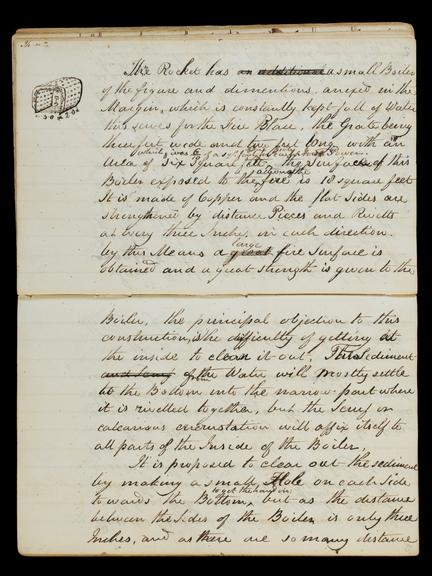 The Rocket has an additional a small Boiler
of the figure and dimentions anexed in the
Margin, which is constantly kept full of Water
this serves for the Fire Place, the Grate being
three feet wide and two feet long with an
Area of Six Square feet, the surface of this
Boiler exposed to the fire is 18 square feet
It is made of Copper and the flat Sides are
strengthened by distance Pieces and Rivetts
at every three Inches, in each direction.
large
by this Means a great fire surface is
obtained and a great strength is given to the
Boiler, the principal objection to this
construction, is the difficulty of getting at
the inside to clean it out, This Sediment
from the Water will mostly settle
to the Bottom into the narrow part where
it is rivetted together, but the Scurf or
calcarious incrustation will affix itself to
all parts of the Inside of the Boiler,
It is proposed to clear out the sediment
by making a small Hole on each Side
to get the hand in
towards the Bottom, but as the distance
between the Sides of the Boiler is only three
Inches, and as there are so many distance